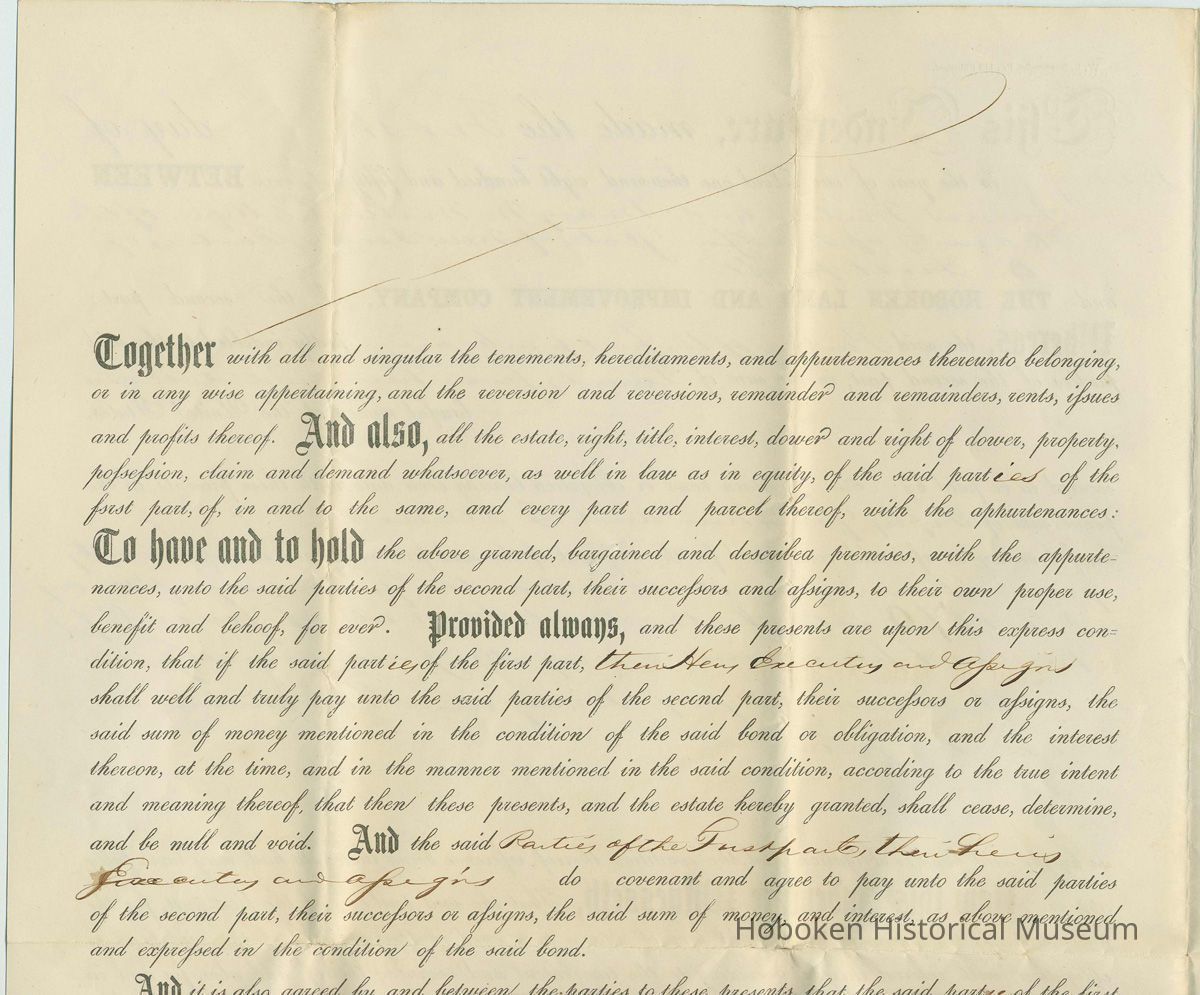 Together with all and singular the tenements, hereditaments, and appurtenances thereunto belonging,
or in any wise appertaining, and the reversion and reversions, remainder and remainders, rents, issues
and profits thereof. And also, all the estate, right, title, interest, dower and right of dower, property,
possession, claim and demand whatsoever, as well in law as in equity, of the said parties of the
first part, of, in and to the same, and every part and parcel thereof, with the appurtenances:
To have and to hold the above granted, bargained and described premises, with the appurte=
nances, unto the said parties of the second part, their successors and assigns, to their own proper use,
benefit and behoof, for ever. Provided always, and these presents are upon this express con=
dition, that if the said parties of the first part, their Heirs Executors and Assigns
shall well and truly pay unto the said parties of the second part, their successors or assigns, the
said sum of money mentioned in the condition of the said bond or obligation, and the interest
thereon, at the time, and in the manner mentioned in the said condition, according to the true intent
and meaning thereof, that then these presents, and the estate hereby granted, shall cease, determine,
and be null and void. And the said Parties of the First part, their heirs
Executors and Assigns do covenant and agree to pay unto the said parties
of the second part, their successors or assigns, the said sum of money and interest, as above mentioned
and expressed in the condition of the said bond.
And it is also agreed by and between the parties to these presents that the said of the first
Hoboken Historical Museum